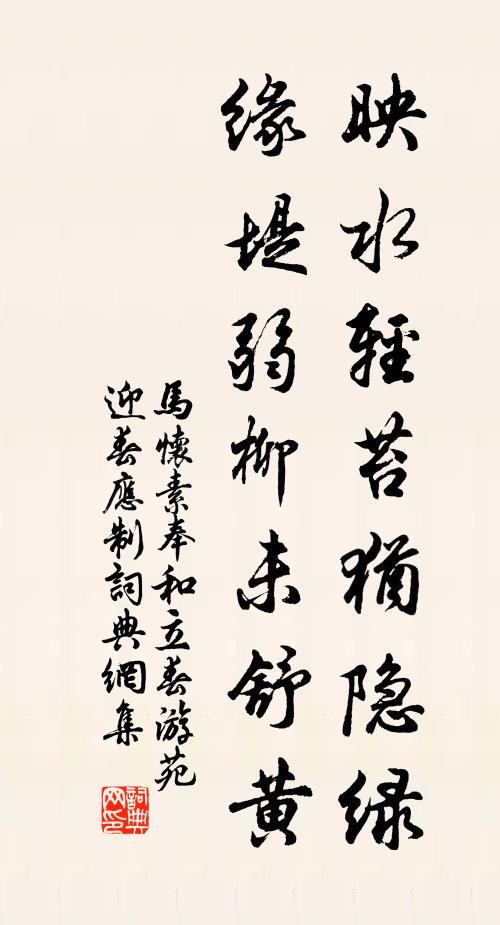 映水輕苔猶隐绿
缘堤弱柳未舒黄
馬懷素奉和立春游苑
迎春應制詞典網集
詞典网印